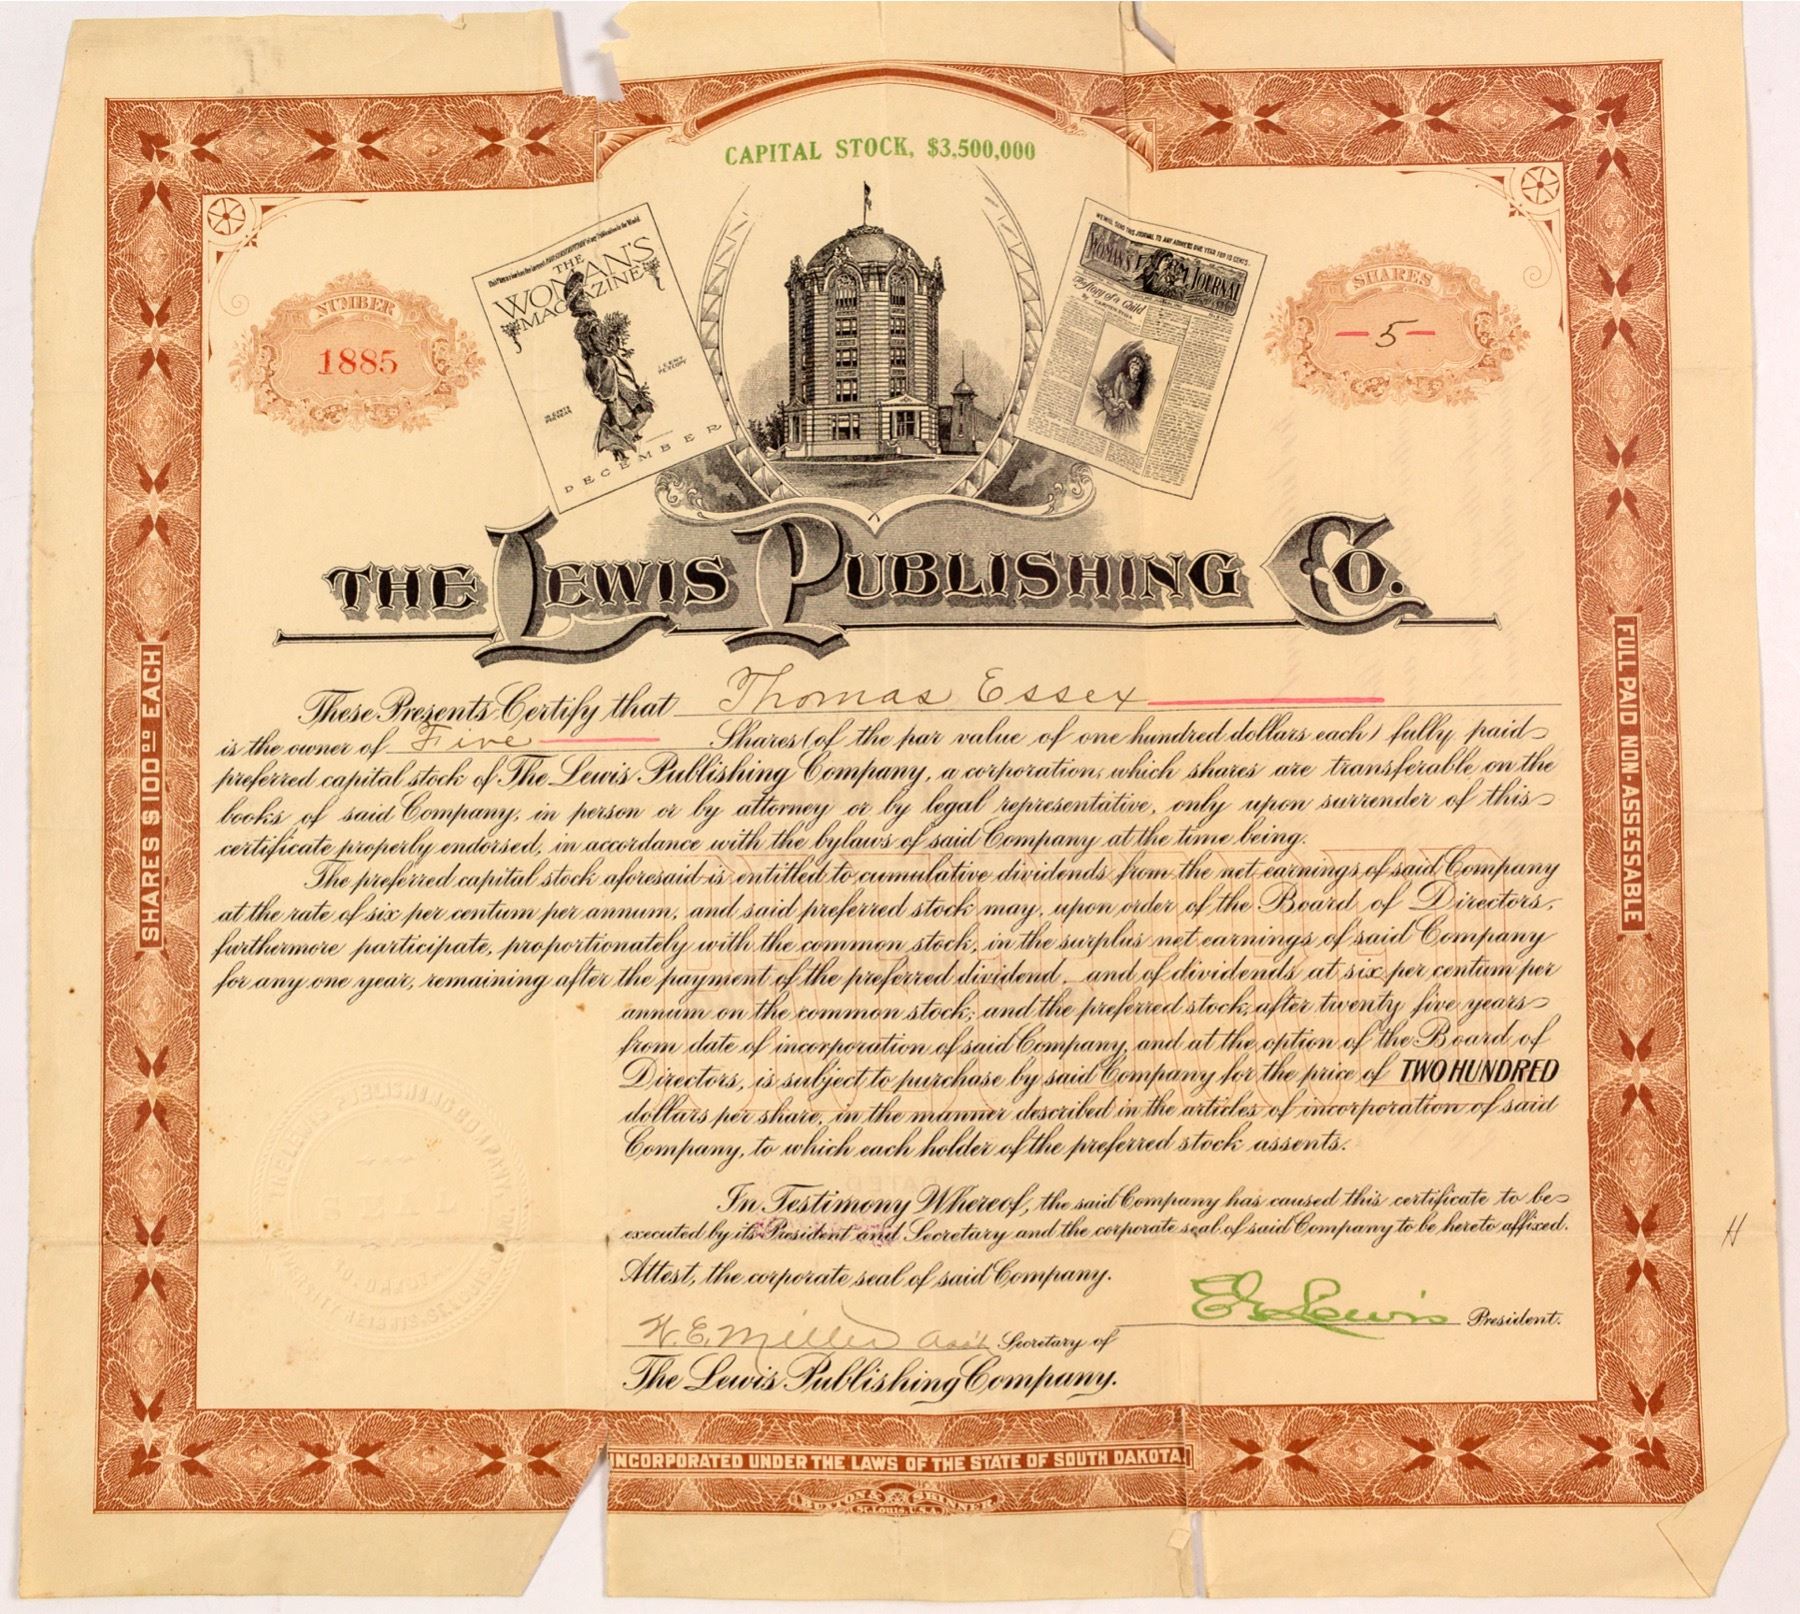 CAPITAL STOCK, $3,500,000
THE
WOMAN'S
MAGAZINE
DECEMBER
WE WILL SEND THIS JOURNAL TO ANY ADDRESS ONE YEAR FOR 10 CENTS.
WOMAN'S FARM JOURNAL
The Story of a Child
NUMBER
1885
SHARES
5
THE LEWIS PUBLISHING CO.
These Presents Certify that Thomas Essex
is the owner of Five Shares (of the par value of one hundred dollars each) fully paid
preferred capital stock of The Lewis Publishing Company, a corporation, which shares are transferable on the
books of said Company, in person or by attorney or by legal representative, only upon surrender of this
certificate properly endorsed, in accordance with the bylaws of said Company at the time being.
The preferred capital stock aforesaid is entitled to cumulative dividends from the net earnings of said Company
at the rate of six per centum per annum, and said preferred stock may, upon order of the Board of Directors,
furthermore participate, proportionately with the common stock, in the surplus net earnings of said Company
for any one year, remaining after the payment of the preferred dividend, and of dividends at six per centum per
annum on the common stock; and the preferred stock, after twenty five years
from date of incorporation of said Company, and at the option of the Board of
Directors, is subject to purchase by said Company for the price of TWO HUNDRED
dollars per share, in the manner described in the articles of incorporation of said
Company, to which each holder of the preferred stock assents.
In Testimony Whereof, the said Company has caused this certificate to be
executed by its President and Secretary and the corporate seal of said Company to be hereto affixed.
Attest, the corporate seal of said Company.
E G Lewis President.
H.E. Miller Ass't Secretary of
The Lewis Publishing Company.
SHARES $100.00 EACH
FULL PAID NON-ASSESSABLE
INCORPORATED UNDER THE LAWS OF THE STATE OF SOUTH DAKOTA.
BUXTON & SKINNER
ST. LOUIS, U.S.A.
H